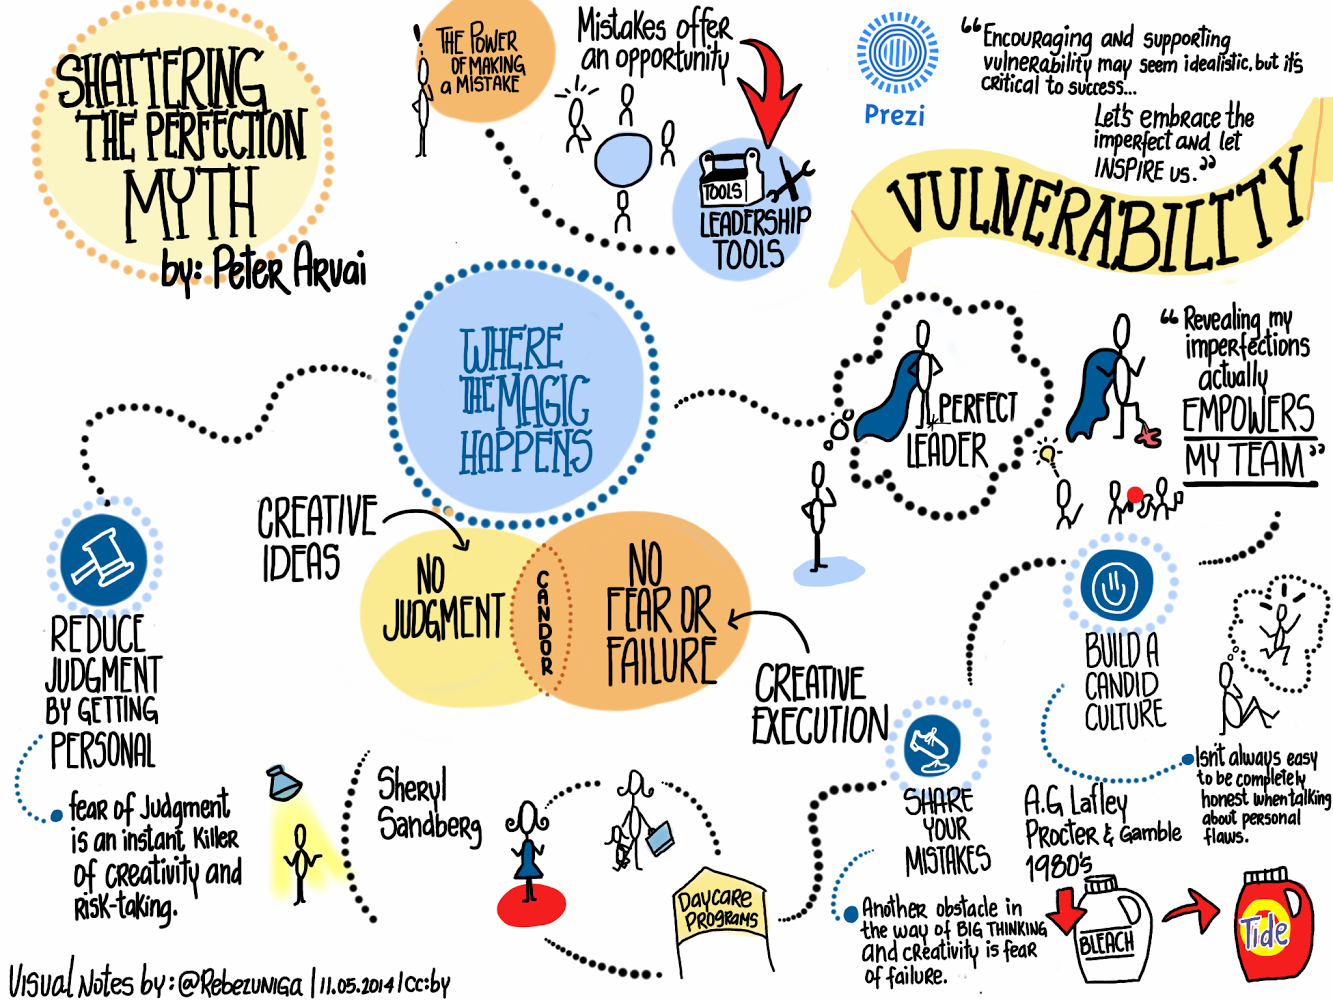 SHATTERING
THE PERFECTION
MYTH
by: Peter Arvai
THE POWER
OF MAKING
a MISTAKE
Mistakes offer
an opportunity
TOOLS
LEADERSHIP
TOOLS
Prezi
“Encouraging and supporting
vulnerability may seem idealistic, but it's
critical to success...
Let's embrace the
imperfect and let
INSPIRE us.”
VULNERABILITY
WHERE
THE MAGIC
HAPPENS
PERFECT
LEADER
“Revealing my
imperfections
actually
EMPOWERS
MY TEAM”
CREATIVE
IDEAS
NO
JUDGMENT
CANDOR
NO
FEAR OR
FAILURE
CREATIVE
EXECUTION
REDUCE
JUDGMENT
BY GETTING
PERSONAL
fear of Judgment
is an instant Killer
of creativity and
risk-taking.
Sheryl
Sandberg
DAYCARE
PROGRAMS
SHARE
YOUR
MISTAKES
Another obstacle in
the way of BIG THINKING
and creativity is fear
of failure.
BUILD A
CANDID
CULTURE
Isn't always easy
to be completely
honest when talking
about personal
flaws.
A.G Lafley
Procter & Gamble
1980's
BLEACH
Tide
Visual Notes by: @Rebezuniga | 11.05.2014 | cc:by